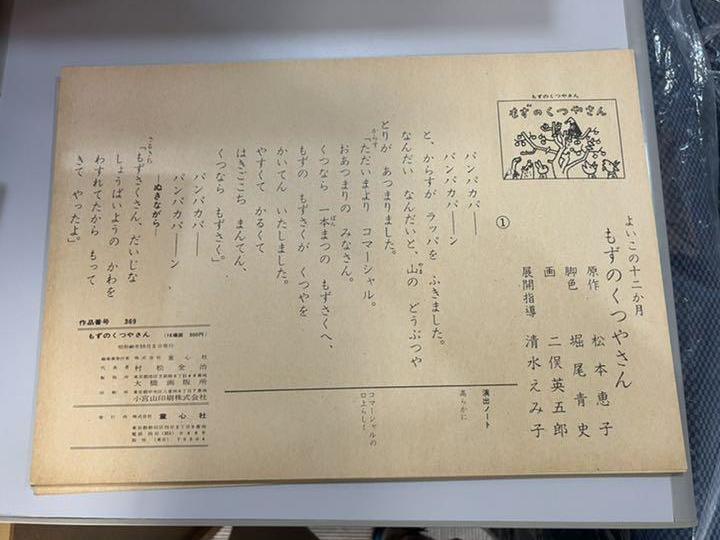 もずのくつやさん
もずのくつやさん
よいこの十二か月
もずのくつやさん
原作 松本恵子
脚色 堀尾青史
画 二俣英五郎
展開指導 清水えみ子
①
パンパカパ――
パンパカパ――ン
と、からすが ラッパを ふきました。
なんだい なんだいと、山の どうぶつや
とりが あつまりました。
からす
「ただいまより コマーシャル。
おあつまりの みなさん。
くつなら 一本まつの もずさくへ、
もずの もずさくが くつやを
かいてん いたしました。
やすくて かるくて
はきごこち まんてん、
くつなら もずさく。」
パンパカパ――
パンパカパ――ン
―ぬきながら―
「もずさくさん、だいじな
しょうばいようの かわを
わすれてたから もって
きて やったよ。」
演出ノート
高らかに
コマーシャルの
口上らしく
作品番号 369
もずのくつやさん
株式会社 童心社
代表者 村松金治
大橋画版所
小宮山印刷株式会社
発行所 株式会社 童心社